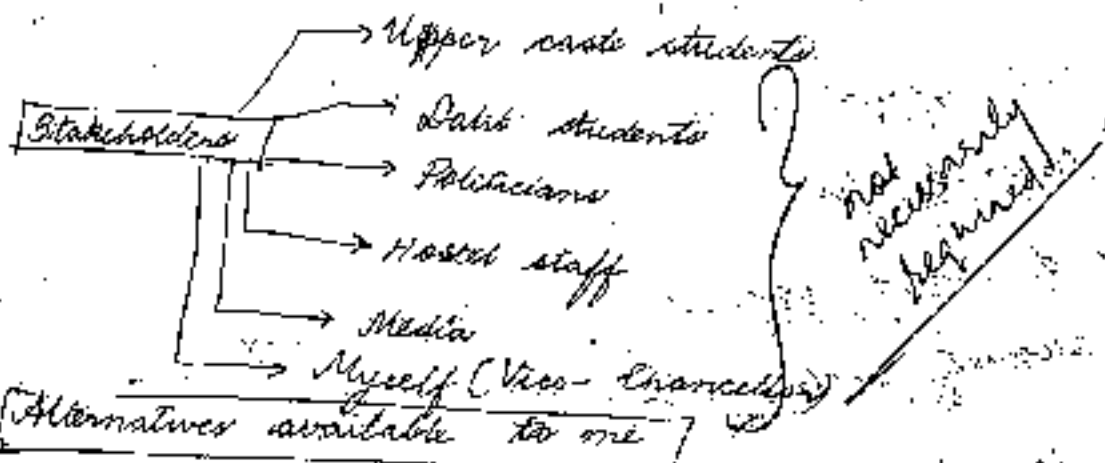 Upper caste students
Stakeholders
Dalit students
Politicians
Hostel staff
Media
Myself (Vice-Chancellor)
not
necessarily
required
Alternatives available to me